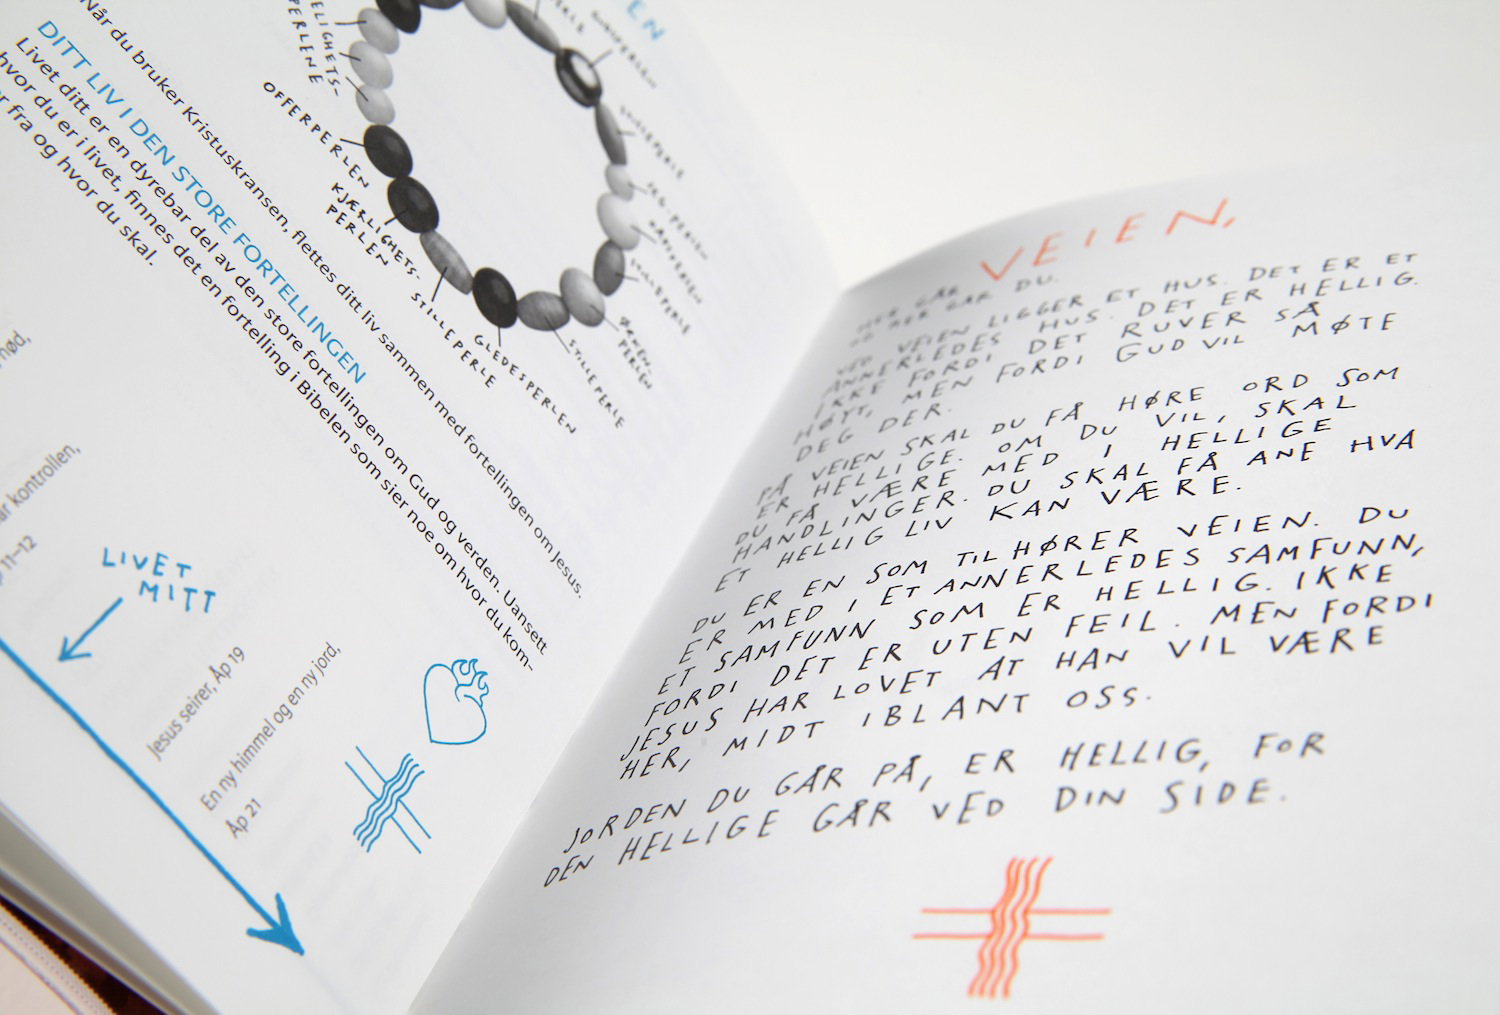 EN
ELIGHETS-
PERLENE
OFFERPERLEN
KJÆRLIGHETS-
PERLEN
STILLEPERLE
GLEDESPERLEN
STILLEPERLE
ØRKEN-
PERLEN
STILLEPERLE
STILLEPERLE
JEG-PERLEN
Når du bruker Kristuskransen, flettes ditt liv sammen med fortellingen om Jesus.
DITT LIV I DEN STORE FORTELLINGEN
Livet ditt er en dyrebar del av den store fortellingen om Gud og verden. Uansett
hvor du er i livet, finnes det en fortelling i Bibelen som sier noe om hvor du kom-
er fra og hvor du skal.
nød,
ar kontrollen,
11–12
LIVET
MITT
Jesus seirer, Åp 19
En ny himmel og en ny jord,
Åp 21
VEIEN,
HER GÅR DU.
VED VEIEN LIGGER ET HUS. DET ER ET
ANNERLEDES HUS. DET ER HELLIG.
IKKE FORDI DET RUVER SÅ
HØYT, MEN FORDI GUD VIL MØTE
DEG DER.
PÅ VEIEN SKAL DU FÅ HØRE ORD SOM
ER HELLIGE. OM DU VIL, SKAL
DU FÅ VÆRE MED I HELLIGE
HANDLINGER. DU SKAL FÅ ANE HVA
ET HELLIG LIV KAN VÆRE.
DU ER EN SOM TILHØRER VEIEN. DU
ER MED I ET ANNERLEDES SAMFUNN,
ET SAMFUNN SOM ER HELLIG. IKKE
FORDI DET ER UTEN FEIL. MEN FORDI
JESUS HAR LOVET AT HAN VIL VÆRE
HER, MIDT IBLANT OSS.
JORDEN DU GÅR PÅ, ER HELLIG, FOR
DEN HELLIGE GÅR VED DIN SIDE.